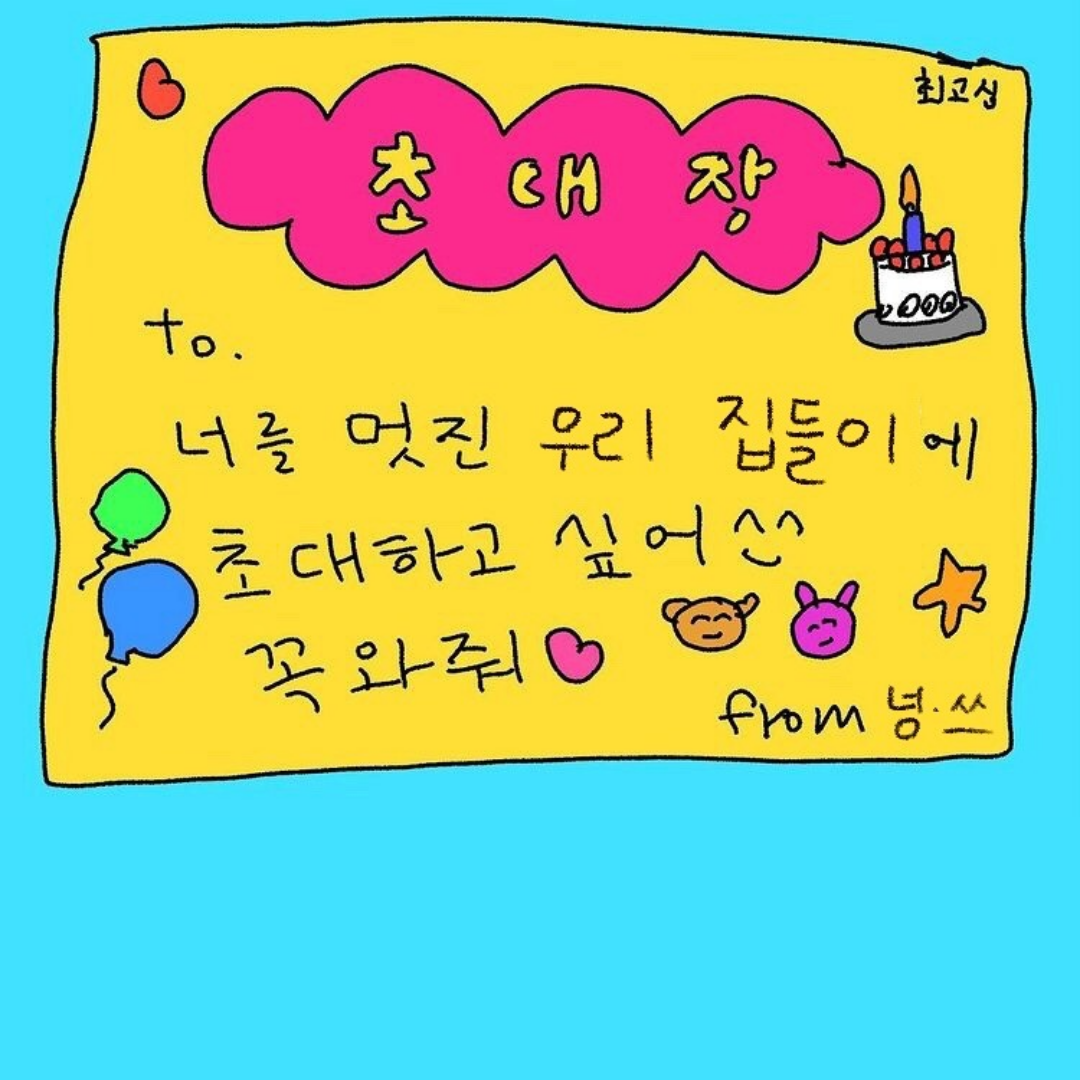 최고심
초대장
to.
너를 멋진 우리 집들이에
초대하고 싶어 ^^
꼭 와줘
from 녕·쓰